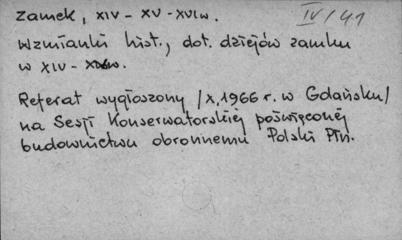 zamek, XIV - XV - XVI w.
IV/41
Wzmianki hist., dot. dziejów zamku
w XIV - w.
Referat wygłoszony /X,1966 r. w Gdańsku/
na Sesji Konserwatorskiej poświęconej
budownictwu obronnemu Polski Płn.